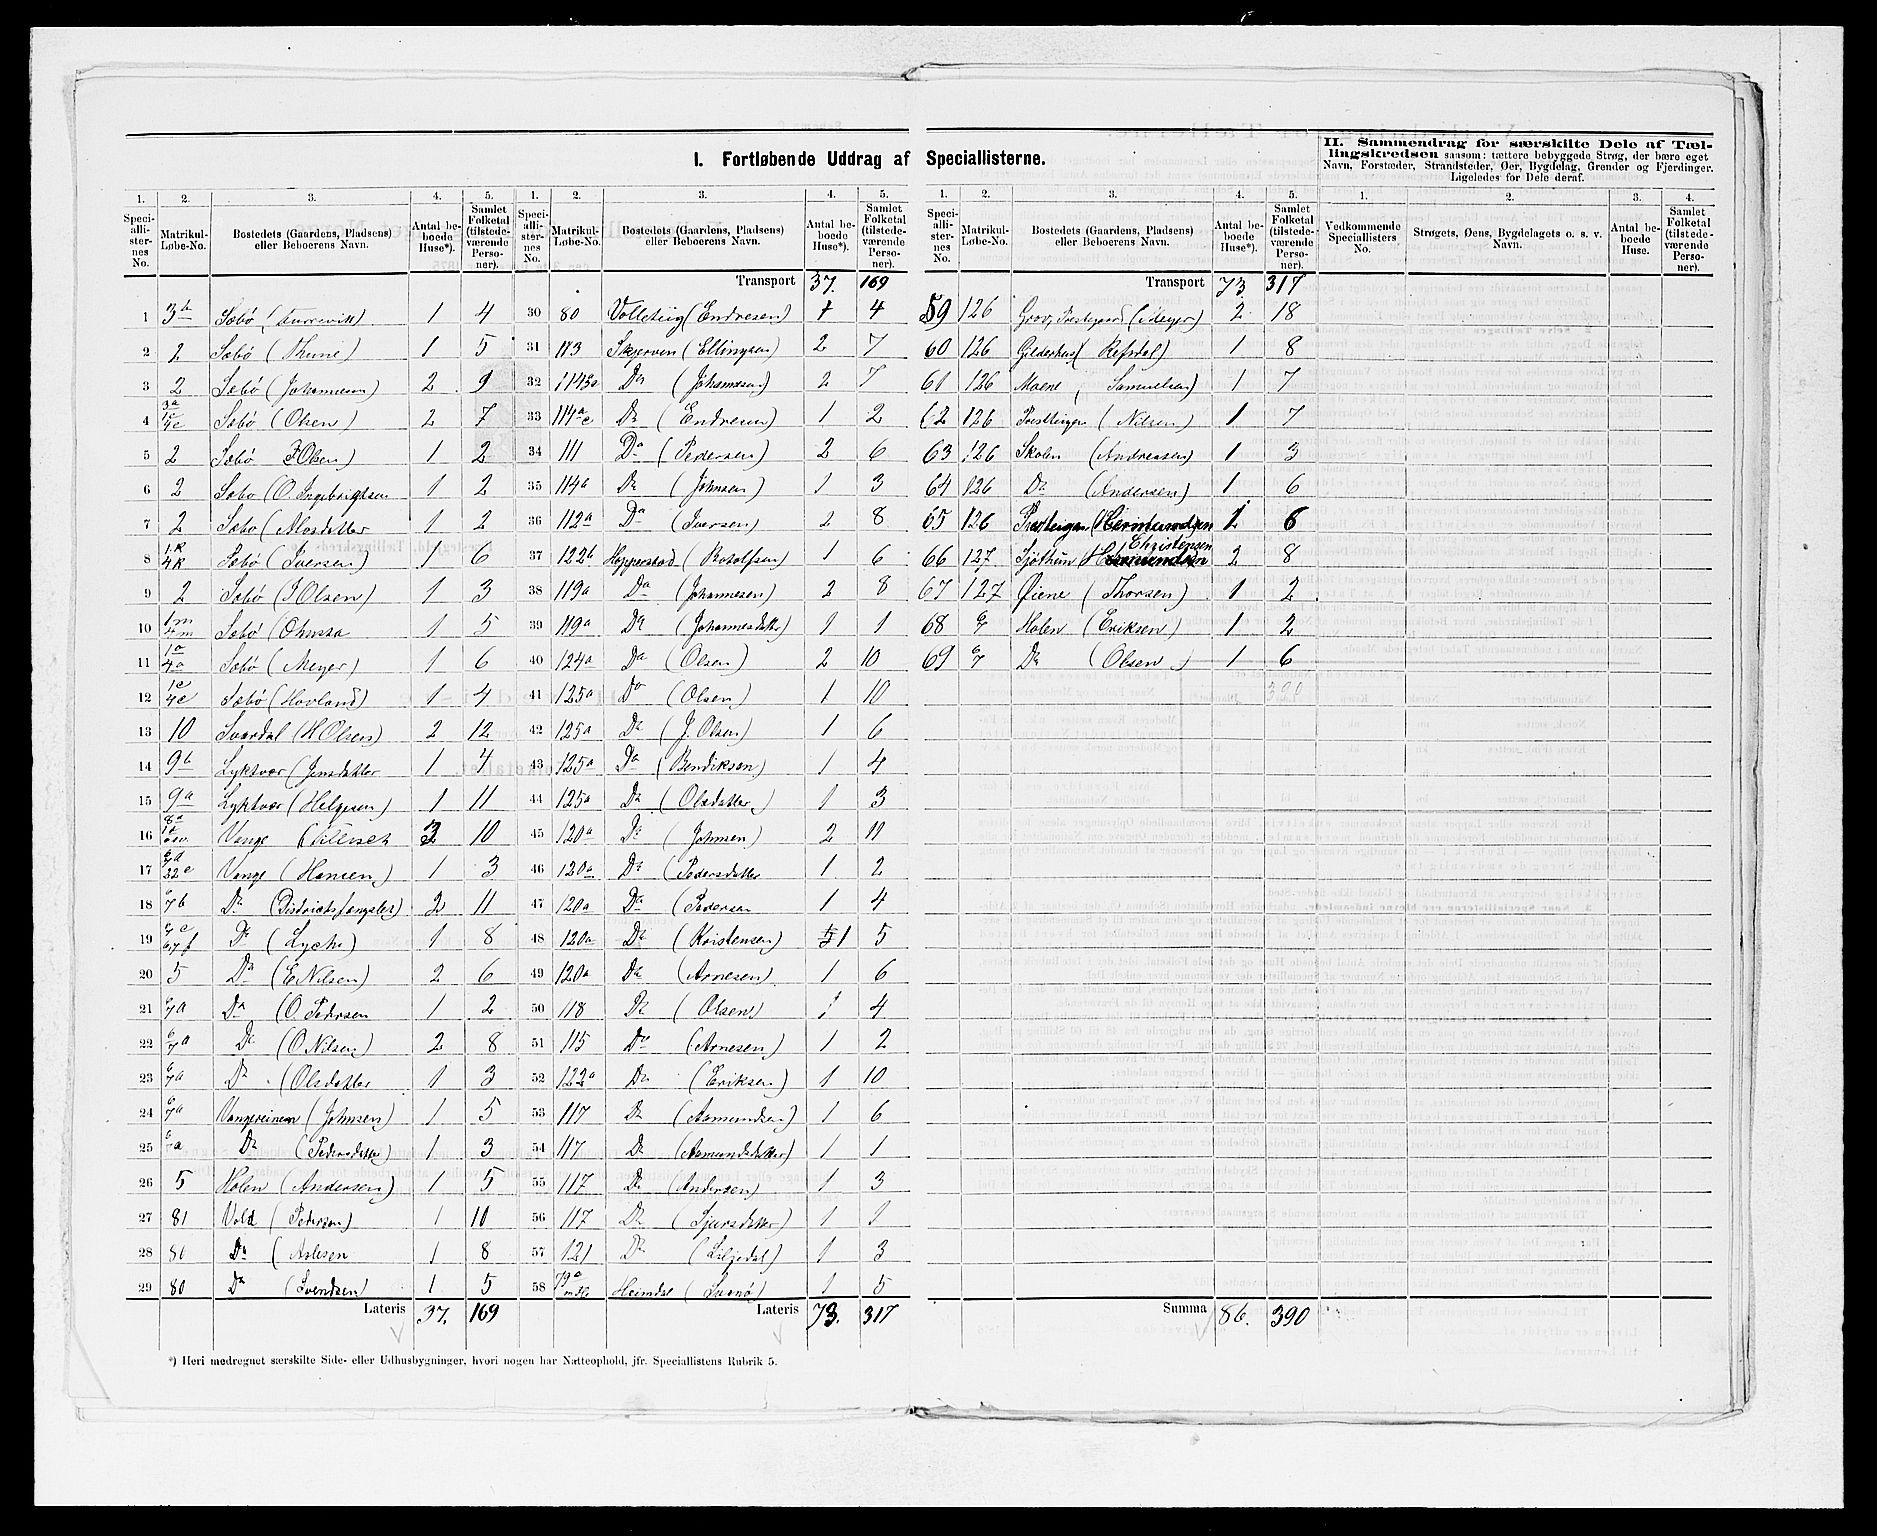 I. Fortløbende Uddrag af Speciallisterne.
II. Sammendrag for særskilte Dele af Tællingskredsen saasom: tættere bebyggede Strøg, der bære eget Navn, Forstæder, Strandsteder, Øer, Bygdelag, Grender og Fjerdinger. Ligeledes for Dele deraf.
1. 2. 3. 4. 5. 1. 2. 3. 4. 5. 1. 2. 3. 4. 5. 1. 2. 3. 4.
Speciallisternes No. Matrikul-Løbe-No. Bostedets (Gaardens, Pladsens) eller Beboerens Navn. Antal beboede Huse*). Samlet Folketal (tilstedeværende Personer).
Speciallisternes No. Matrikul-Løbe-No. Bostedets (Gaardens, Pladsens) eller Beboerens Navn. Antal beboede Huse*). Samlet Folketal (tilstedeværende Personer).
Speciallisternes No. Matrikul-Løbe-No. Bostedets (Gaardens, Pladsens) eller Beboerens Navn. Antal beboede Huse*). Samlet Folketal (tilstedeværende Personer).
Vedkommende Speciallisters No. Strøgets, Øens, Bygdelagets o. s. v. Navn. Antal beboede Huse. Samlet Folketal (tilstedeværende Personer).
1 3b Sæbø 1 4
2 2 Sæbø (Thune) 1 5
3 2 Sæbø (Johannesen) 2 9
4 Sæbø (Olsen) 2 7
5 2 Sæbø Olsen) 1 2
6 2 Sæbø (O. Ingebrigtsen 1 2
7 2 Sæbø 1 2
8 1k 4k Sæbø (Iversen) 1 6
9 2 Sæbø (J Olsen) 1 3
10 1m 4m Sæbø 1 5
11 1a 4a Sæbø (Meyer) 1 6
12 1c 4c Sæbø (Hovland) 1 4
13 10 Svardal (H Olsen) 2 12
14 9b Lyktvor (Jensdatter 1 4
15 9a Lyktvor (Helgesen) 1 11
16 Vange 3 10
17 Vange (Hansen) 1 3
18 6 7b Do (Districtsfængslet) 2 11
19 Do (Lyche) 1 8
20 5 Do (E Nilsen) 2 6
21 6 7a Do (O. Pedersen 1 2
22 6 7a Do (O Nilsen) 2 8
23 6 7a Do (Olsdatter 1 3
24 6 7a Vangereinen (Johnsen) 1 5
25 6 7a Do (Pedersdatter) 1 3
26 5 Holen (Andersen) 1 5
27 81 Vold (Pedersen) 1 10
28 80 Do (Aslesen 1 8
29 80 Do (Svendsen) 1 5
Lateris 37. 169
Transport 37. 169
30 80 Volleteig (Endresen) 1 4
31 113 Skjerven (Ellingsen) 2 7
32 Do (Johannesen) 2 7
33 114a c Do (Endresen) 1 2
34 111 Do (Pedersen) 2 6
35 114a Do (Johnsen) 1 3
36 112a Do (Iversen) 2 8
37 122b Hopperstad (Botolfsen) 1 6
38 119a Do (Johannesen) 2 8
39 119a Do (Johannesdatter) 1 1
40 124a Do (Olsen) 2 10
41 125a Do (Olsen) 1 10
42 125a Do (J. Olsen) 1 6
43 125a Do (Bendiksen) 1 4
44 125a Do (Olsdatter) 1 3
45 120a Do (Johnsen) 2 11
46 120a Do (Pedersdatter 1 2
47 120a Do (Pedersen 1 4
48 120a Do (Kristensen) 1 5
49 120a Do (Arnesen) 1 6
50 118 Do (Olsen) 1 4
51 115 Do (Arnesen) 1 2
52 122a Do (Eriksen) 1 10
53 117 Do (Aamundsen) 1 6
54 117 Do (Aamundsdatter) 1 1
55 117 Do (Andersen) 1 3
56 117 Do (Sjursdatter) 1 1
57 121 Do (Liljedal) 1 3
58 79a Heimdal 1 5
Lateris 73. 317
Transport 73. 317
59 126 Grov, Prestegaard (Meyer) 2 18
60 126 Gilderhus (Refsdal) 1 8
61 126 Moene (Samuelsen) 1 7
62 126 Presteigen (Nilsen) 1 7
63 126 Skolen (Andreasen) 1 3
64 126 Do (Andersen) 1 6
65 126 Presteigen (Hermundsen 1 6
66 127 Sjøthun Christensen 2 8
67 127 Øiene (Thorsen) 1 2
68 6 7 Holen (Eriksen) 1 2
69 6 7 Do (Olsen) 1 6
390
Summa 86. 390
*) Heri medregnet særskilte Side- eller Udhusbygninger, hvori nogen har Natteophold, jfr. Speciallistens Rubrik 5.